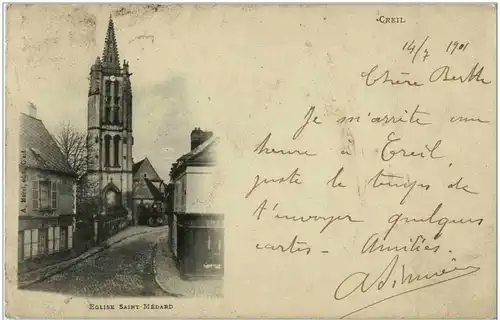 CREIL
14/7 1901
Chère Berthe
Je m'arrête une
heure à Creil,
juste le temps de
t'envoyer quelques
cartes - Amitiés.
EGLISE SAINT MÉDARD